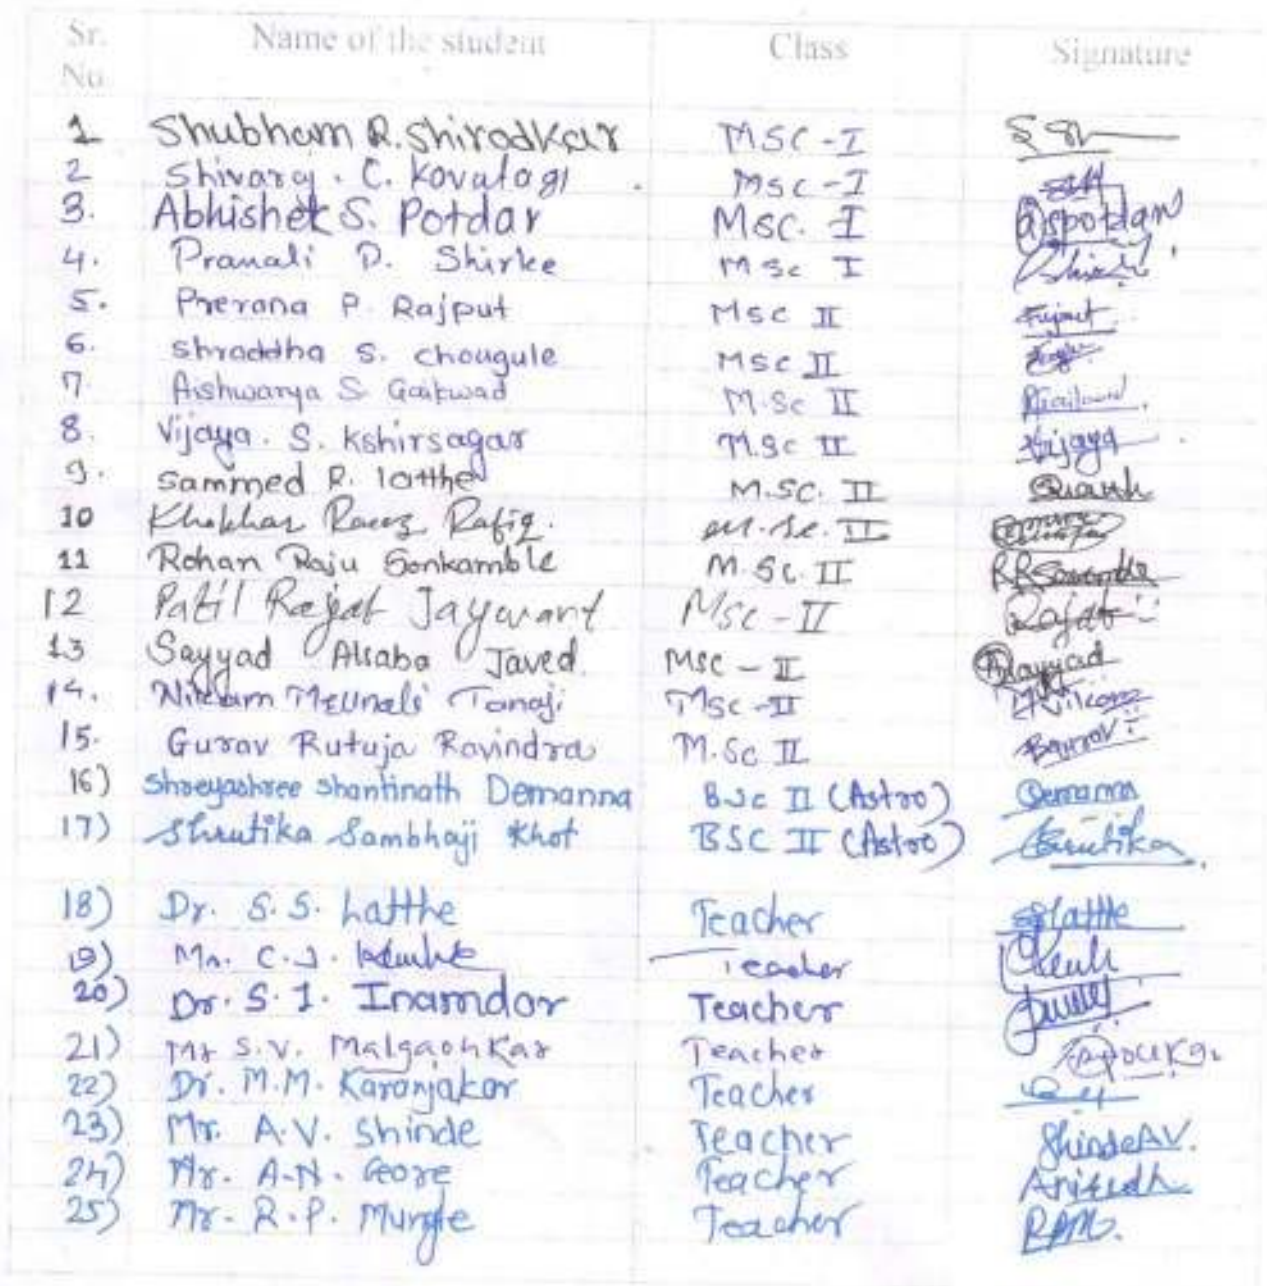 Sr. No. Name of the student Class Signature
1 Shubham R. Shirodkar MSC-I
2 Shivaraj. C. Kovalagi MSC-I
3. Abhishek S. Potdar MSC. I aspotdar
4. Pranali D. Shirke MSc I
5. Prerana P. Rajput MSC II
6. Shraddha S. Chougule MSC II
7 Aishwarya S. Gaikwad M.Sc II
8. Vijaya. S. Kshirsagar M.Sc II Vijaya
9. Sammed R. latthe M.SC. II
10 Khakhar Raeez Rafiq. M.Sc. II
11 Rohan Raju Sonkamble M.Sc. II
12 Patil Rajat Jayavant MSC-II Rajat
13 Sayyad Alsaba Javed. MSC-II Sayyad
14. Nikam Meunali Tanaji MSC-II
15. Gurav Rutuja Ravindra M.Sc II
16) Shreyashree Shantinath Demanna BSc II (Astro) Demanna
17) Shrutika Sambhaji Khot BSC II (Astro) Shrutika
18) Dr. S.S. Latthe Teacher SSLatthe
19) Mr. C.J. Teacher
20) Dr. S.I. Inamdar Teacher
21) Mr S.V. Malgaonkar Teacher
22) Dr. M.M. Karanjakar Teacher
23) Mr. A.V. Shinde Teacher ShindeAV.
24) Mr. A.N. Gore Teacher Anirudh
25) Mr. R.P. Murgle Teacher RPM.